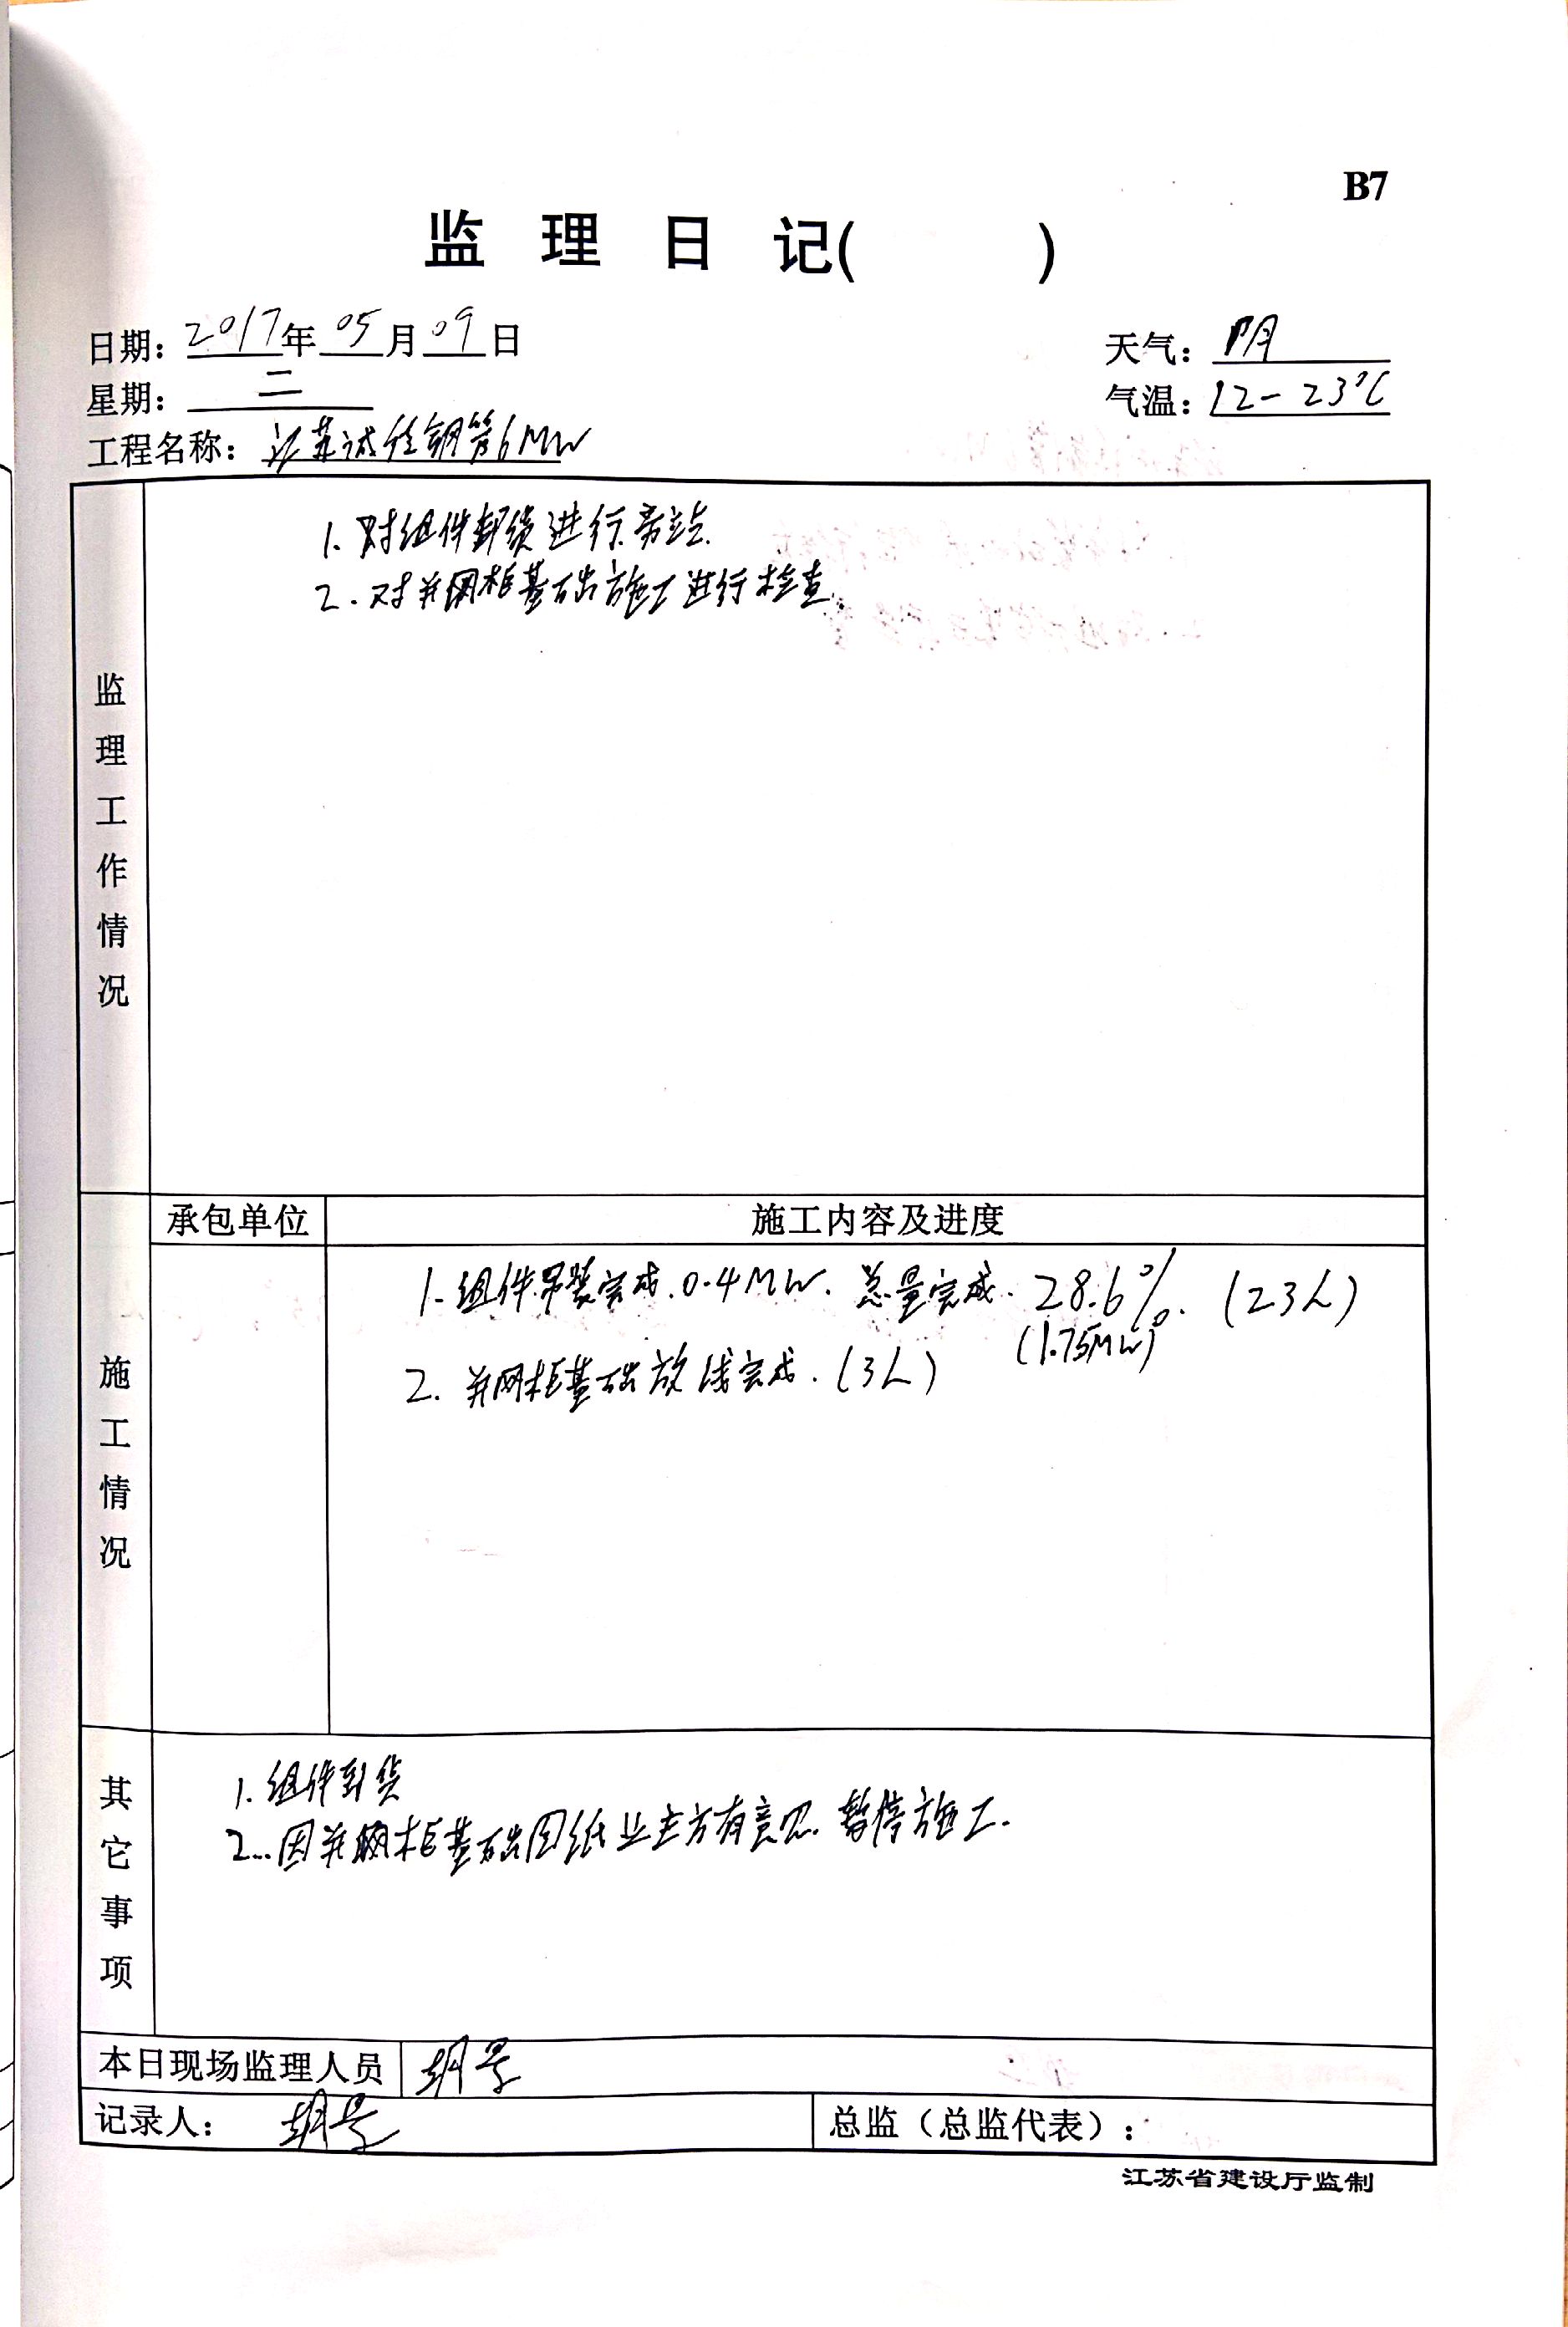 B7
监 理 日 记( )
日期: 2017年 05月 09日
天气: 阴
星期: 二
气温: 12-23℃
工程名称: 江苏诚信钢管6MW
监理工作情况
1. 对组件卸货进行旁站.
2. 对并网柜基础施工进行检查.
承包单位 施工内容及进度
施工情况
1. 组件吊装完成.0.4MW. 总量完成. 28.6%. (23人)
(1.75MW)
2. 并网柜基础放线完成. (3人)
其它事项
1. 组件到货
2. 因并网柜基础图纸业主方有意见. 暂停施工.
本日现场监理人员
记录人:
总监（总监代表）:
江苏省建设厅监制